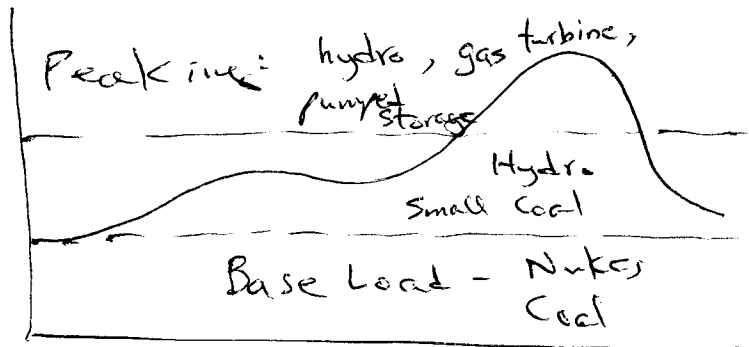 Peaking: hydro, gas turbine,
pumped
storage
Hydro
Small Coal
Base Load - Nukes,
Coal